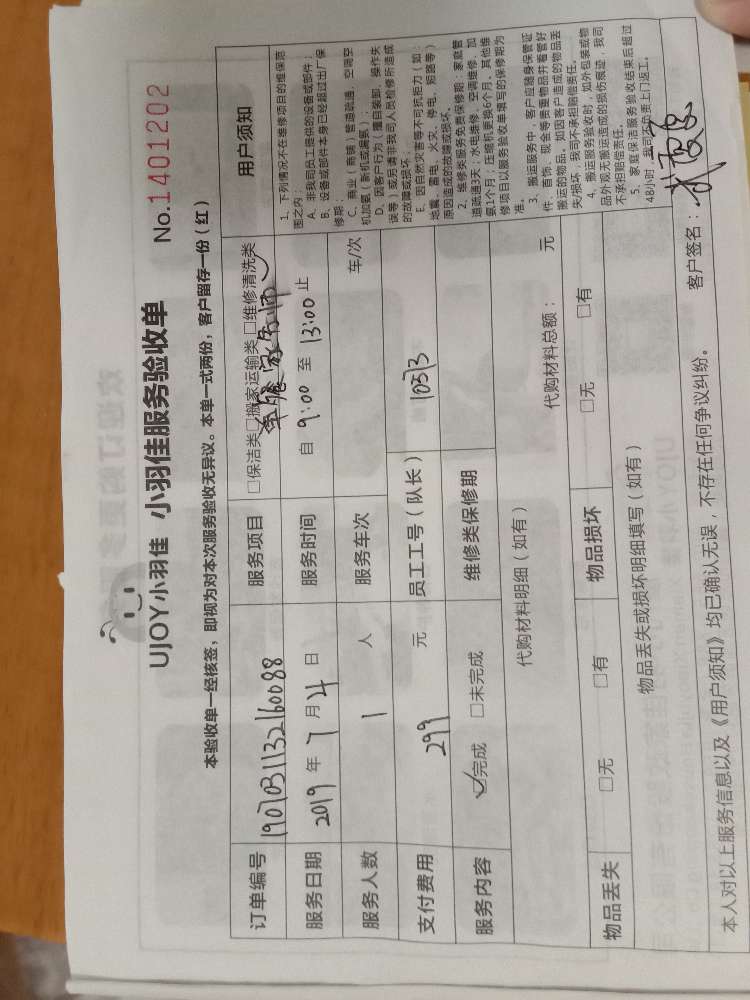 UJOY小羽佳 小羽佳服务验收单
No.1401202
本验收单一经核签，即视为对本次服务验收无异议。本单一式两份，客户留存一份（红）
订单编号 1907031132160088 服务项目 □保洁类□搬家运输类□维修清洗类
服务日期 2019年7月4日 服务时间 自9:00至13:00止
服务人数 1人 服务车次 车/次
支付费用 299元 员工工号（队长） 10373
服务内容 ☑完成 □未完成 维修类保修期
代购材料明细（如有） 代购材料总额： 元
物品丢失 □无 □有 物品损坏 □无 □有
物品丢失或损坏明细填写（如有）
用户须知
1、下列情况不在维修项目的维保范
围之内：
A、非我司员工提供的设备或部件；
B、设备或部件本身已经超过出厂保
修期；
C、商业（商铺）管道疏通，空调空
机加氨（新机或漏氨）。
D、因客户行为（擅自装卸，操作失
误等）或另请非我司人员检修所造成
的故障或损坏。
E、因自然灾害等不可抗拒力（如：
地震、雷电、火灾、停电、短路等）
原因造成的故障或损坏。
2、维修类服务免费保修期：家庭管
道疏通3天，水电维修、空调维修、加
氨1个月；压缩机更换6个月，其他维
修项目以服务验收单填写的保修期为
准。
3、搬运服务中，客户应随身保管证
件、首饰、现金等贵重物品并看管好
搬运的物品。如因客户造成的物品丢
失/损坏，我司不承担赔偿责任。
4、搬运服务验收时，如外包装或物
品外观无搬运造成的损伤痕迹，我司
不承担赔偿责任。
5、家庭保洁服务验收结束后超过
48小时，我司不负责上门返工。
本人对以上服务信息以及《用户须知》均已确认无误，不存在任何争议纠纷。 客户签名：